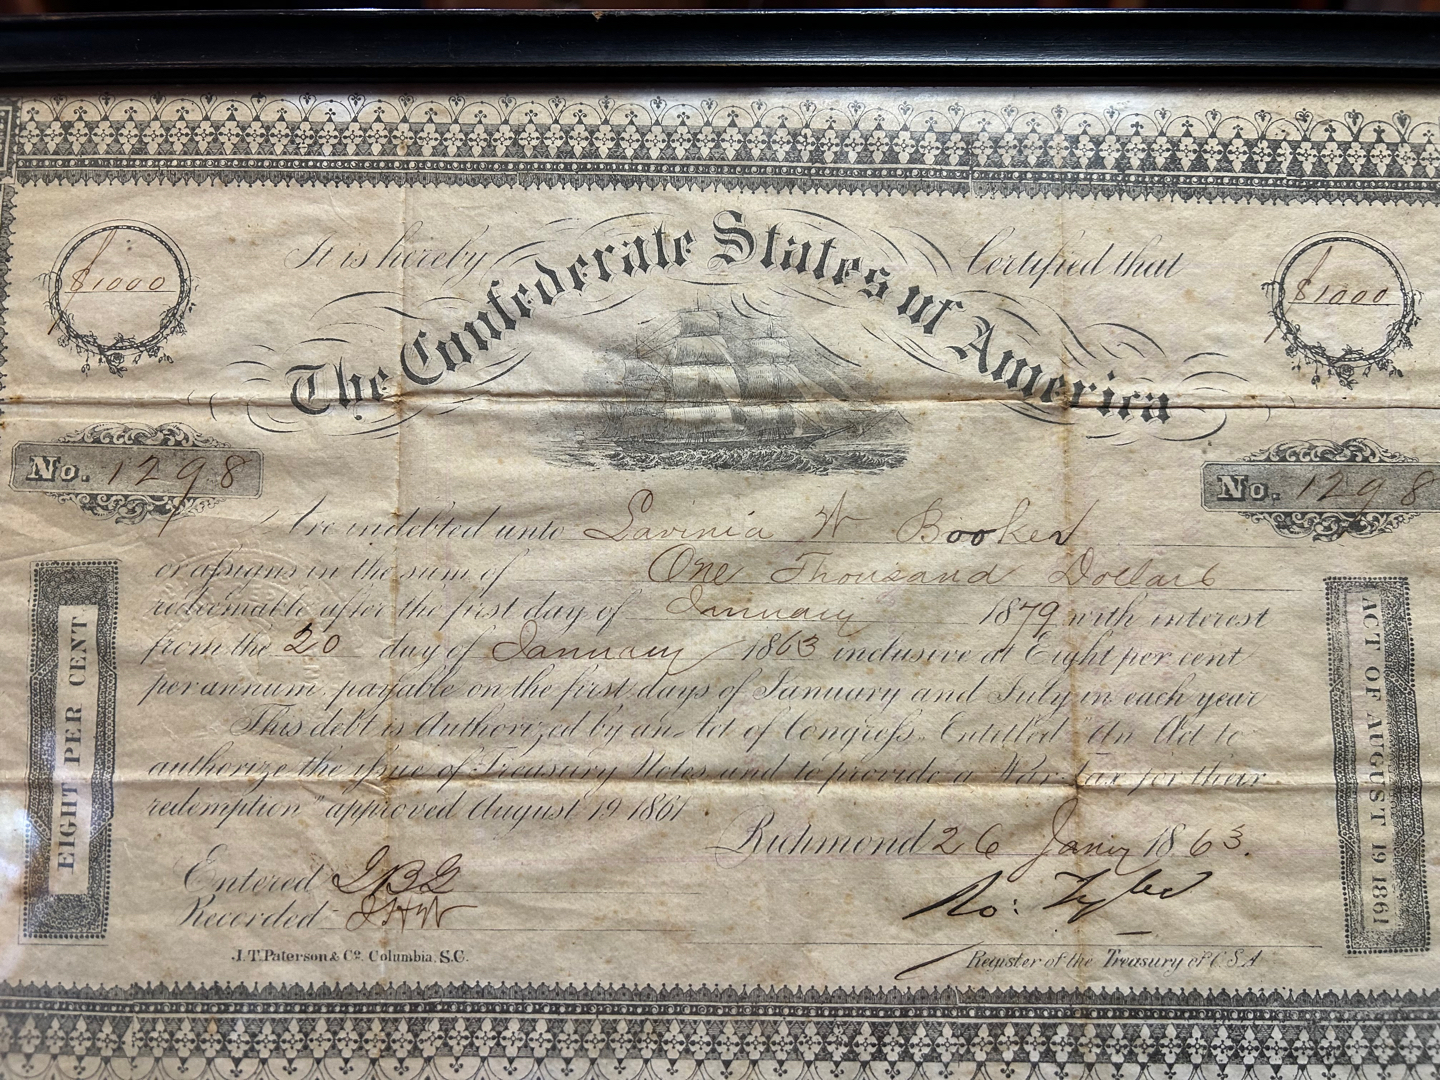 It is hereby Certified that
The Confederate States of America
$1000
$1000
No. 1298
No. 1298
Are indebted unto Lavinia W Booker
or assigns in the sum of One Thousand Dollars
redeemable after the first day of January 1879 with interest
from the 20 day of January 1863 inclusive at Eight per cent
per annum, payable on the first days of January and July in each year
This debt is Authorized by an Act of Congress, Entitled "An Act to
authorize the issue of Treasury Notes and to provide a War Tax for their
redemption" approved August 19 1861
EIGHT PER CENT
ACT OF AUGUST 19 1861
Richmond 26 Jany 1863.
Entered
Recorded
Ro: Tyler
Register of the Treasury of C.S.A
J.T. Paterson & Co. Columbia, S.C.